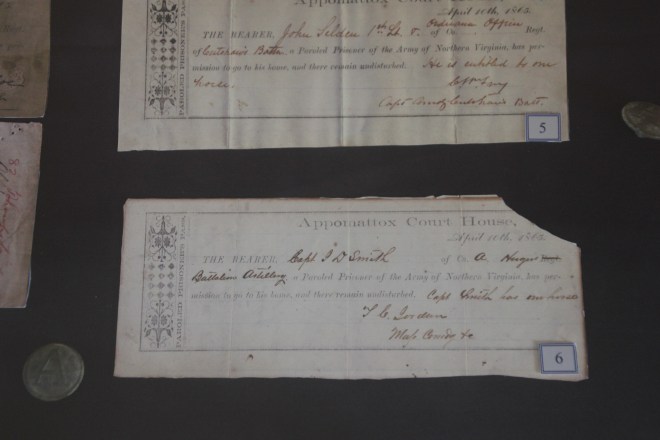 Appomattox Court House,
April 10th, 1865
Ordnance Officer
THE BEARER, John Selden 1st Lt & of Co. Regt.
of Cutshaw's Battn, a Paroled Prisoner of the Army of Northern Virginia, has per-
mission to go to his home, and there remain undisturbed. He is entitled to one
horse.
Capt Comdg Cutshaw's Batt.
PAROLED PRISONER'S PASS.
5
Appomattox Court House,
April 10th, 1865
THE BEARER, Capt J D Smith of Co. A Huger
Battalion Artillery, a Paroled Prisoner of the Army of Northern Virginia, has per-
mission to go to his home, and there remain undisturbed. Capt Smith has one horse
T. C. Jordan
Maj Comdg &c
PAROLED PRISONER'S PASS.
6
A